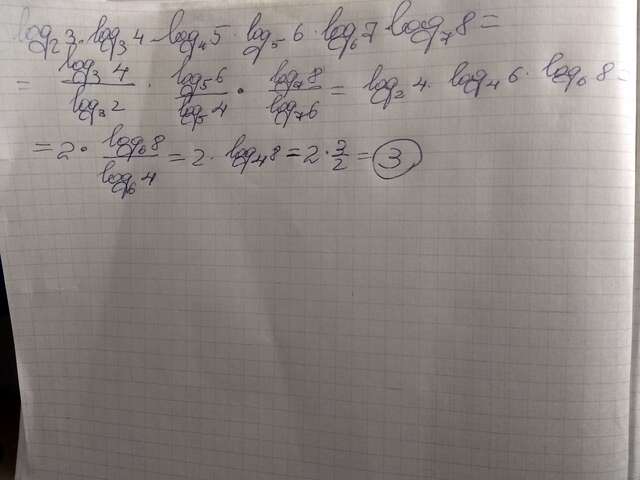 log₂3·log₃4·log₄5·log₅6·log₆7 log₇8=
= log₃4/log₃2 · log₅6/log₅4 · log₇8/log₇6 = log₂4·log₄6·log₆8=
=2·log₆8/log₆4=2·log₄8=2·3/2=3